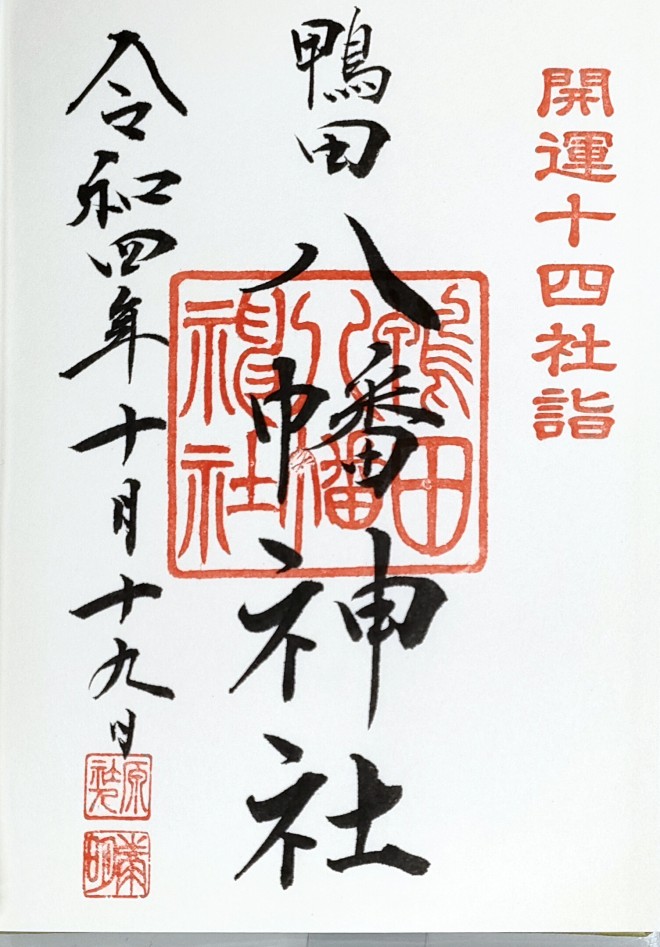 開運十四社詣
鴨田八幡神社
鴨田
八幡
神社
令和四年十月十九日